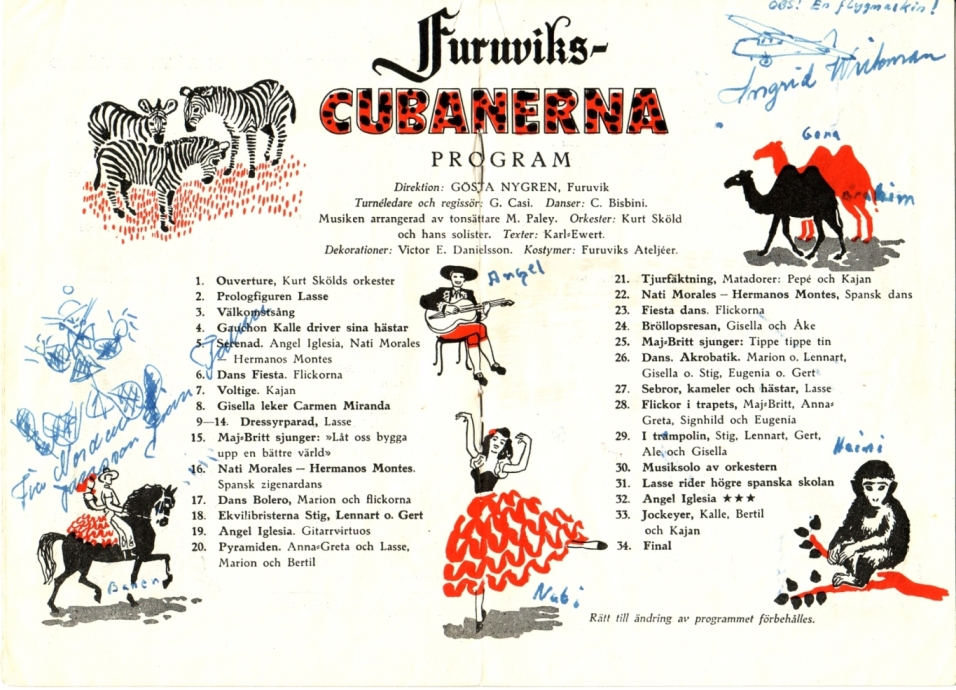 OBS! En flygmaskin!
Furuviks-
CUBANERNA
PROGRAM
Direktion: GÖSTA NYGREN, Furuvik
Turnéledare och regissör: G. Casi. Danser: C. Bisbini.
Musiken arrangerad av tonsättare M. Paley. Orkester: Kurt Sköld
och hans solister. Texter: Karl-Ewert.
Dekorationer: Victor E. Danielsson. Kostymer: Furuviks Ateljéer.
1. Ouverture, Kurt Skölds orkester
2. Prologfiguren Lasse
3. Välkomstsång
4. Gauchon Kalle driver sina hästar
5. Serenad. Angel Iglesia, Nati Morales
– Hermanos Montes
6. Dans Fiesta. Flickorna
7. Voltige. Kajan
8. Gisella leker Carmen Miranda
9—14. Dressyrparad, Lasse
15. Maj-Britt sjunger: »Låt oss bygga
upp en bättre värld»
16. Nati Morales – Hermanos Montes.
Spansk zigenardans
17. Dans Bolero, Marion och flickorna
18. Ekvilibristerna Stig, Lennart o. Gert
19. Angel Iglesia. Gitarrvirtuos
20. Pyramiden. Anna-Greta och Lasse,
Marion och Bertil
21. Tjurfäktning, Matadorer: Pepé och Kajan
22. Nati Morales – Hermanos Montes, Spansk dans
23. Fiesta dans. Flickorna
24. Bröllopsresan, Gisella och Åke
25. Maj-Britt sjunger: Tippe tippe tin
26. Dans. Akrobatik. Marion o. Lennart,
Gisella o. Stig, Eugenia o. Gert
27. Sebror, kameler och hästar, Lasse
28. Flickor i trapets, Maj-Britt, Anna-
Greta, Signhild och Eugenia
29. I trampolin, Stig, Lennart, Gert,
Ale och Gisella
30. Musiksolo av orkestern
31. Lasse rider högre spanska skolan
32. Angel Iglesia ★★★
33. Jockeyer, Kalle, Bertil
och Kajan
34. Final
Rätt till ändring av programmet förbehålles.
Ingrid
Angel
Heini